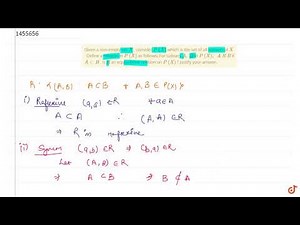 1455656
Given a non-empty set X, consider P (X) which is the set of all subsets of X.
Define a relation R in P (X) as follows: For subsets A, B in P (X), A R B if
A ⊂ B. Is R an equivalence relation on P (X)? Justify your answer.
R : {(A, B) A⊂B ∀ A,B ∈ P(X)}
(i) Reflexive (a,a) ∈ R ∀ a ∈ A
A ⊂ A ∴ (A, A) ∈ R
⇒ R is reflexive
(ii) Symm (a,b) ∈ R ⇒ (b,a) ∈ R
Let (A, B) ∈ R
⇒ A ⊂ B ⇒ B ⊄ A
doubtnut